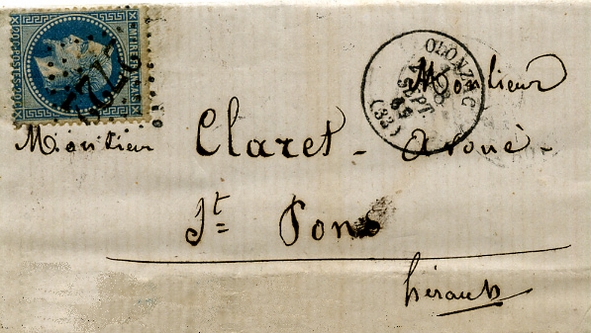 EMPIRE FRANÇAIS
OLONZAC
2
SEPT
69
(33)
Monsieur
Monsieur Claret - Avoué -
St Pons
hérault